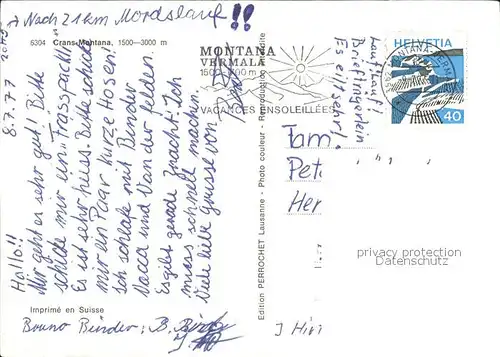 Nach 21km Mordslauf!!
6304 Crans-Montana, 1500-3000 m
8.7.77
Hallo!!
Mir geht es sehr gut! Bitte
schicke mir ein "Frasspäckli"
Es ist sehr heiss. Bitte schicke
mir ein Paar kurze Hosen!
Ich schlafe mit Bender
Vacca und Van der Felden.
Es gibt gerade Znacht. Ich
muss schnell machen
Viele liebe Grüsse von
Imprimé en Suisse
Bruno Binder: B.
MONTANA
VERMALA
VACANCES ENSOLEILLÉES
Edition PERROCHET Lausanne - Photo couleur - Reproduction interdite
Lauf Lauf!
Briefträgerlein
Es eilt sehr!
HELVETIA
40
Fam
Pet
Her
privacy protection
Datenschutz